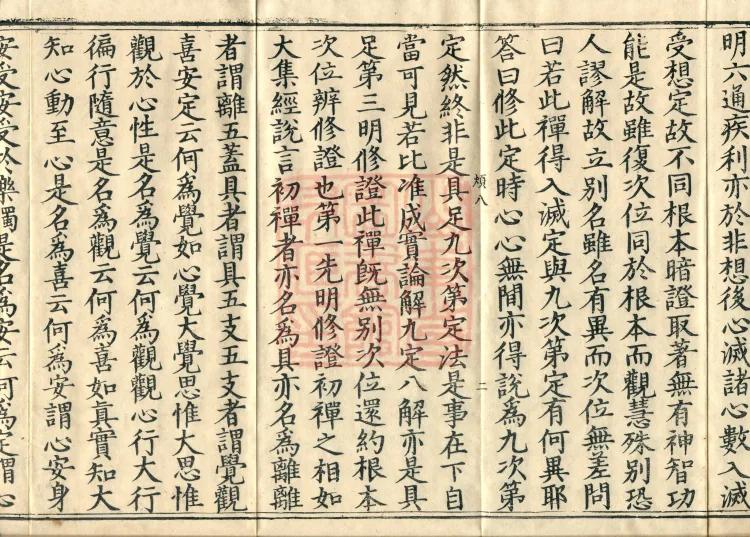 明六通疾利亦於非想後心滅諸心數入滅
受想定故不同根本暗證取著無有神智功
能是故雖復次位同於根本而觀慧殊別恐
人謬解故立別名雖名有異而次位無差問
曰若此禪得入滅定與九次第定有何異耶
答曰修此定時心心無間亦得說爲九次第
頗八 二
定然終非是具足九次第定法是事在下自
當可見若比准成實論解九定八解亦是具
足第三明修證此禪旣無別次位還約根本
次位辨修證也第一先明修證初禪之相如
大集經說言初禪者亦名爲具亦名爲離離
者謂離五蓋具者謂具五支五支者謂覺觀
喜安定云何爲覺如心覺大覺思惟大思惟
觀於心性是名爲覺云何爲觀觀心行大行
徧行隨意是名爲觀云何爲喜如眞實知大
知心動至心是名爲喜云何爲安謂心安身
安受安受於樂觸是名爲安云何爲定謂心